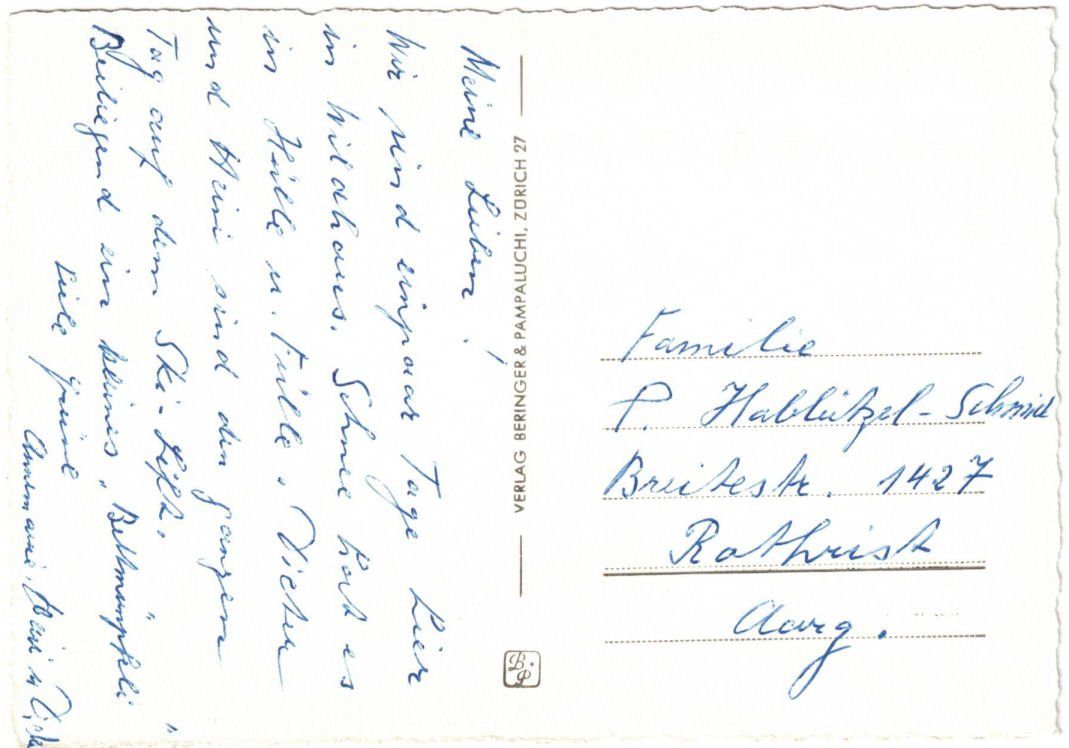 Meine Lieben!
Wir sind einpaar Tage hier
in Wildhaus. Schnee hat es
in Hülle u. Fülle, Dieter
und Heini sind den ganzen
Tag auf dem Ski-Lift.
Beiliegend ein kleines „Bettmümpfeli"
Liebe Grüsse
Annemarie, Heini u.
VERLAG BERINGER & PAMPALUCHI, ZÜRICH 27
B.P.
Familie
P. Hablützel-Schmid
Breitestr. 1427
Rothrist
Aarg.